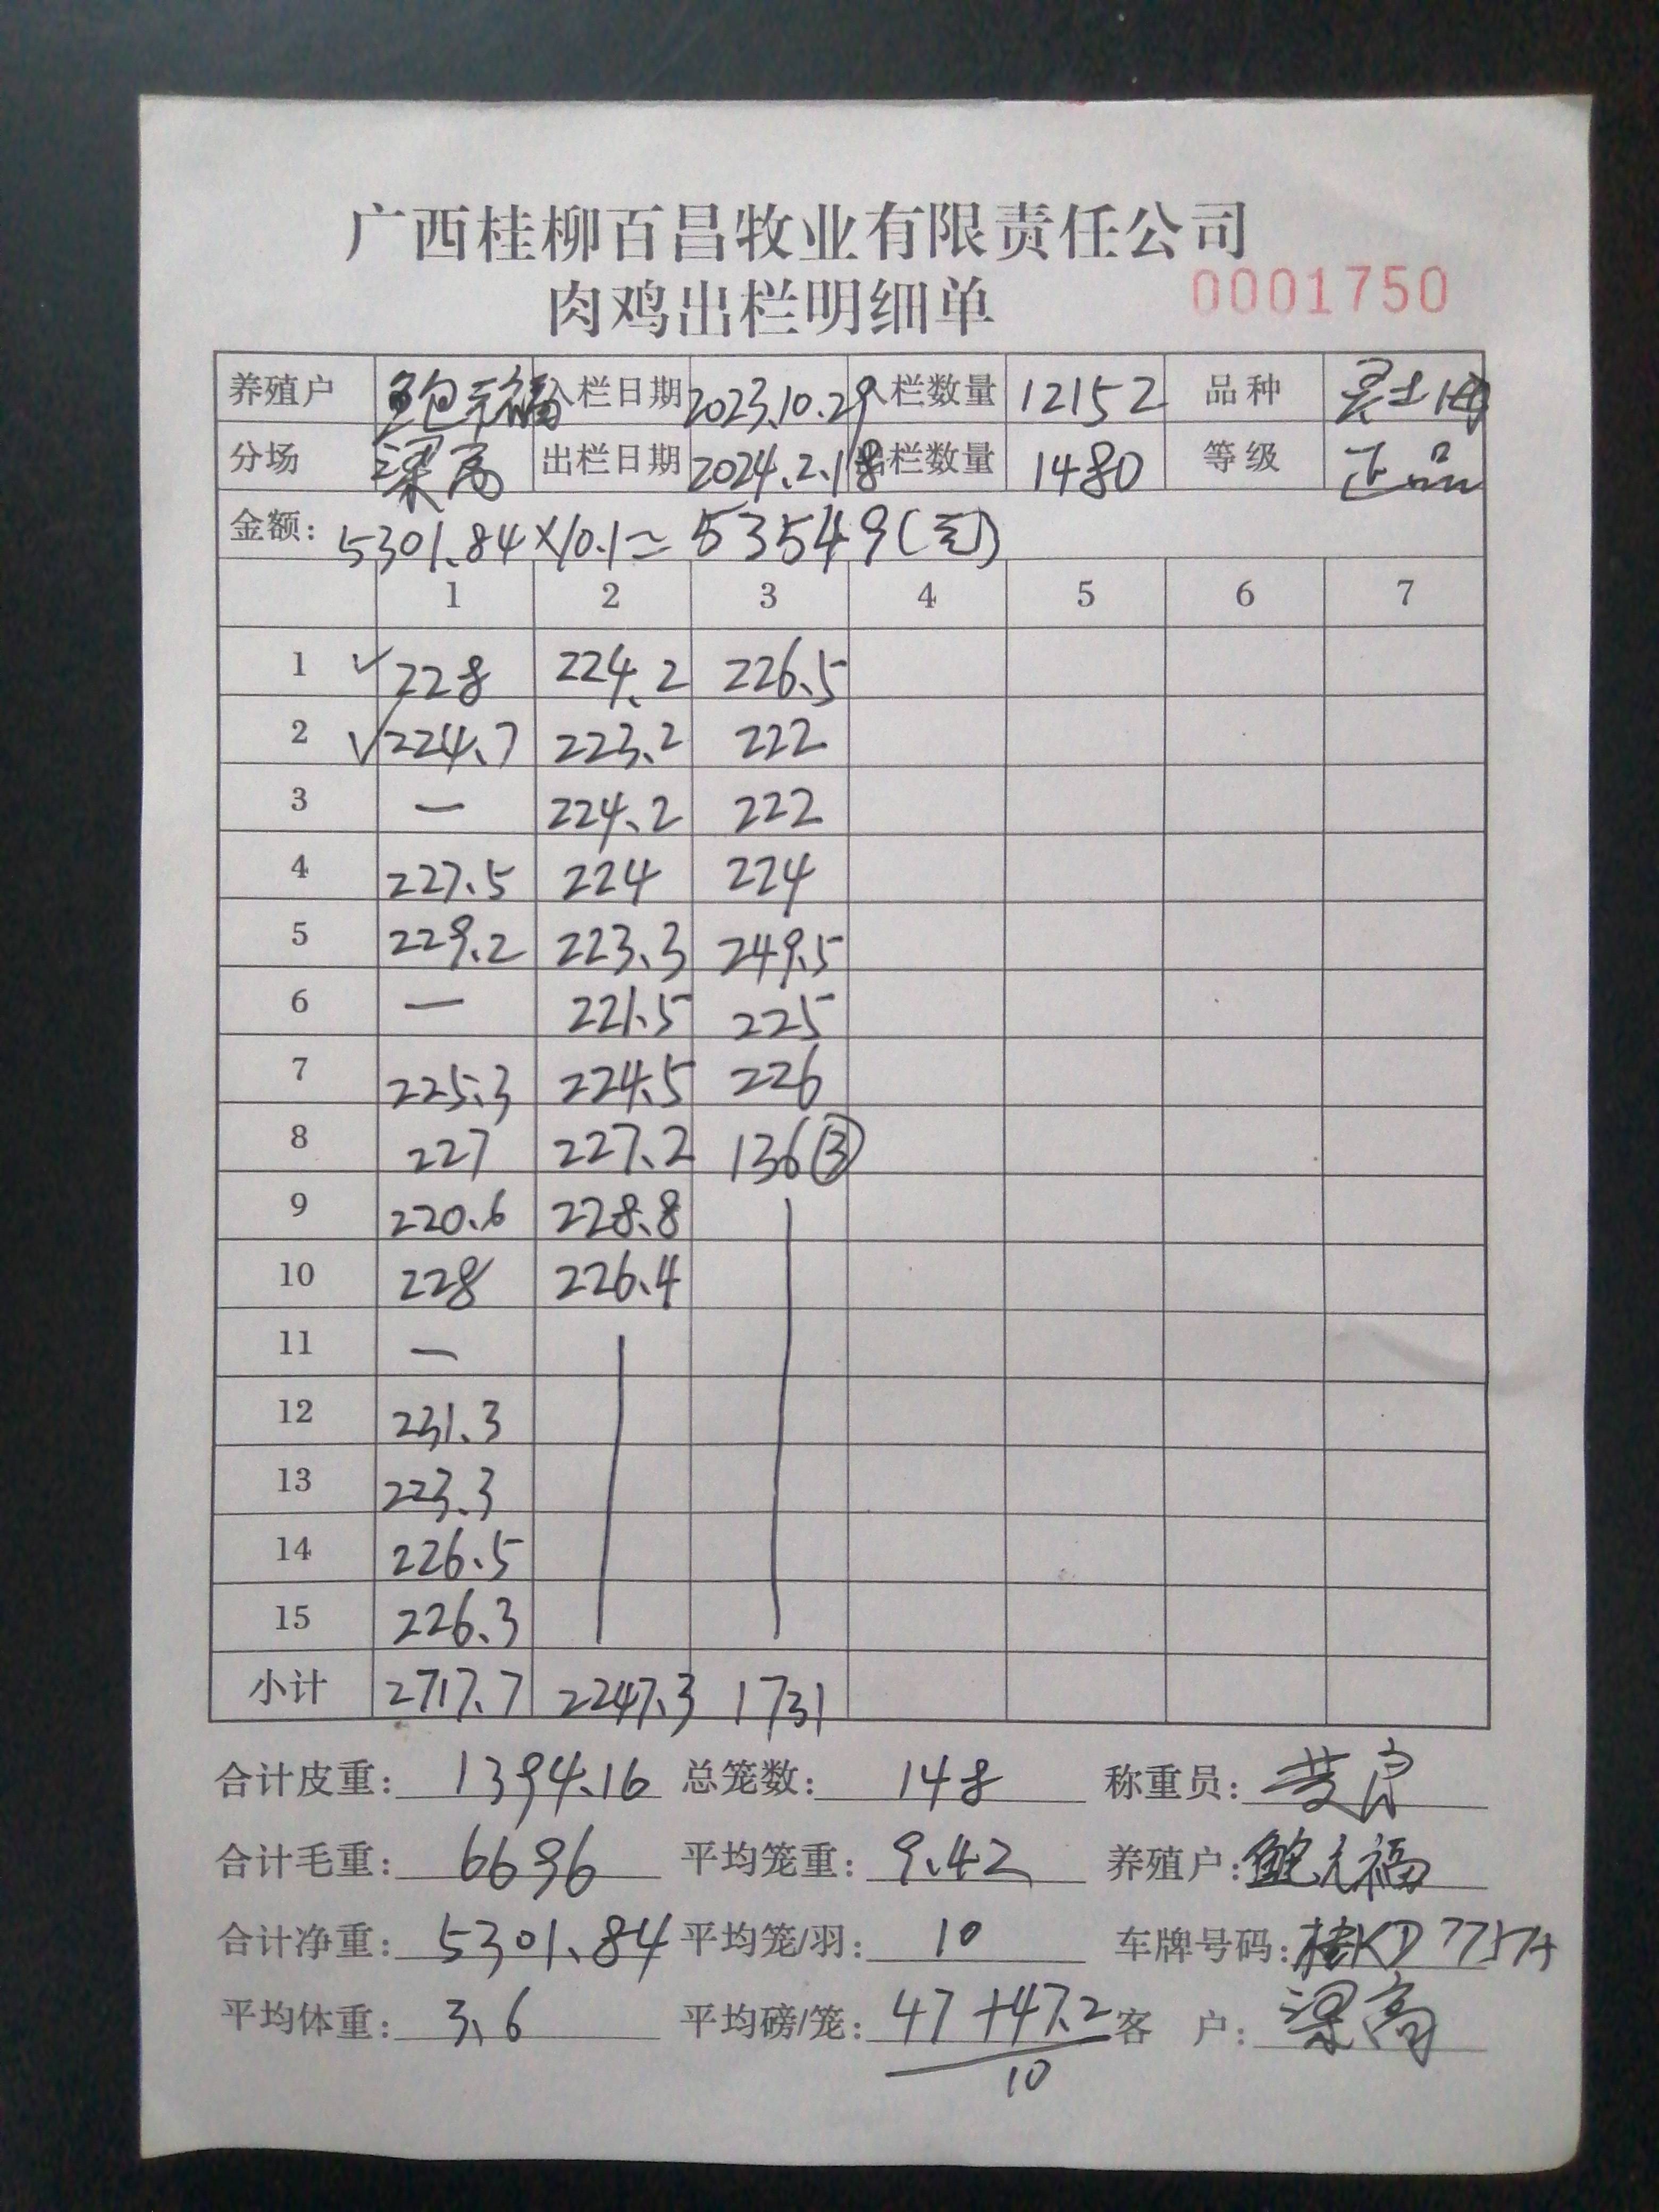 广西桂柳百昌牧业有限责任公司
肉鸡出栏明细单 0001750
养殖户 鲍元福 入栏日期 2023.10.29 入栏数量 12152 品种
分场 梁高 出栏日期 2024.2.18 出栏数量 1480 等级 正品
金额: 5301.84×10.1= 53549(元)
1 2 3 4 5 6 7
1 ✓228 224.2 226.5
2 ✓224.7 223.2 222
3 — 224.2 222
4 227.5 224 224
5 229.2 223.3 249.5
6 — 221.5 225
7 225.3 224.5 226
8 227 227.2 136③
9 220.6 228.8
10 228 226.4
11 —
12 231.3
13 223.3
14 226.5
15 226.3
小计 2717.7 2247.3 1731
合计皮重: 1394.16 总笼数: 148 称重员:
合计毛重: 6696 平均笼重: 9.42 养殖户: 鲍元福
合计净重: 5301.84 平均笼/羽: 10 车牌号码: 桂KD7757
平均体重: 3.6 平均磅/笼: 47+47.2 客 户: 梁高
10